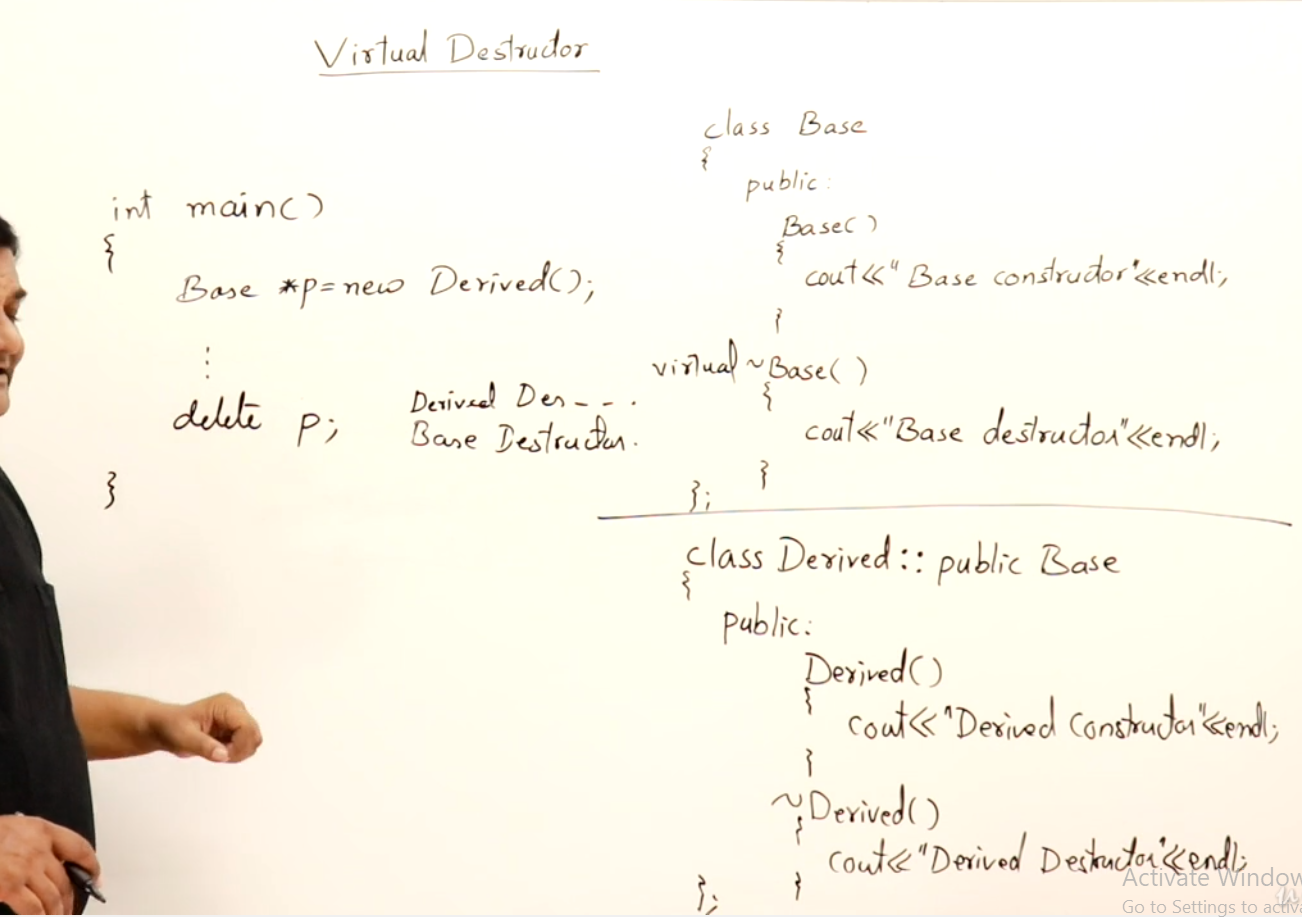 Virtual Destructor
int main()
{
Base *p=new Derived();
⋮
delete p;
}
Derived Des---.
Base Destructor.
class Base
{
public:
Base()
{
cout<<"Base constructor"<<endl;
}
virtual ~Base()
{
cout<<"Base destructor"<<endl;
}
};
class Derived:: public Base
{
public:
Derived()
{
cout<<"Derived Constructor"<<endl;
}
~Derived()
{
cout<<"Derived Destructor"<<endl;
}
};
Activate Window
Go to Settings to activa